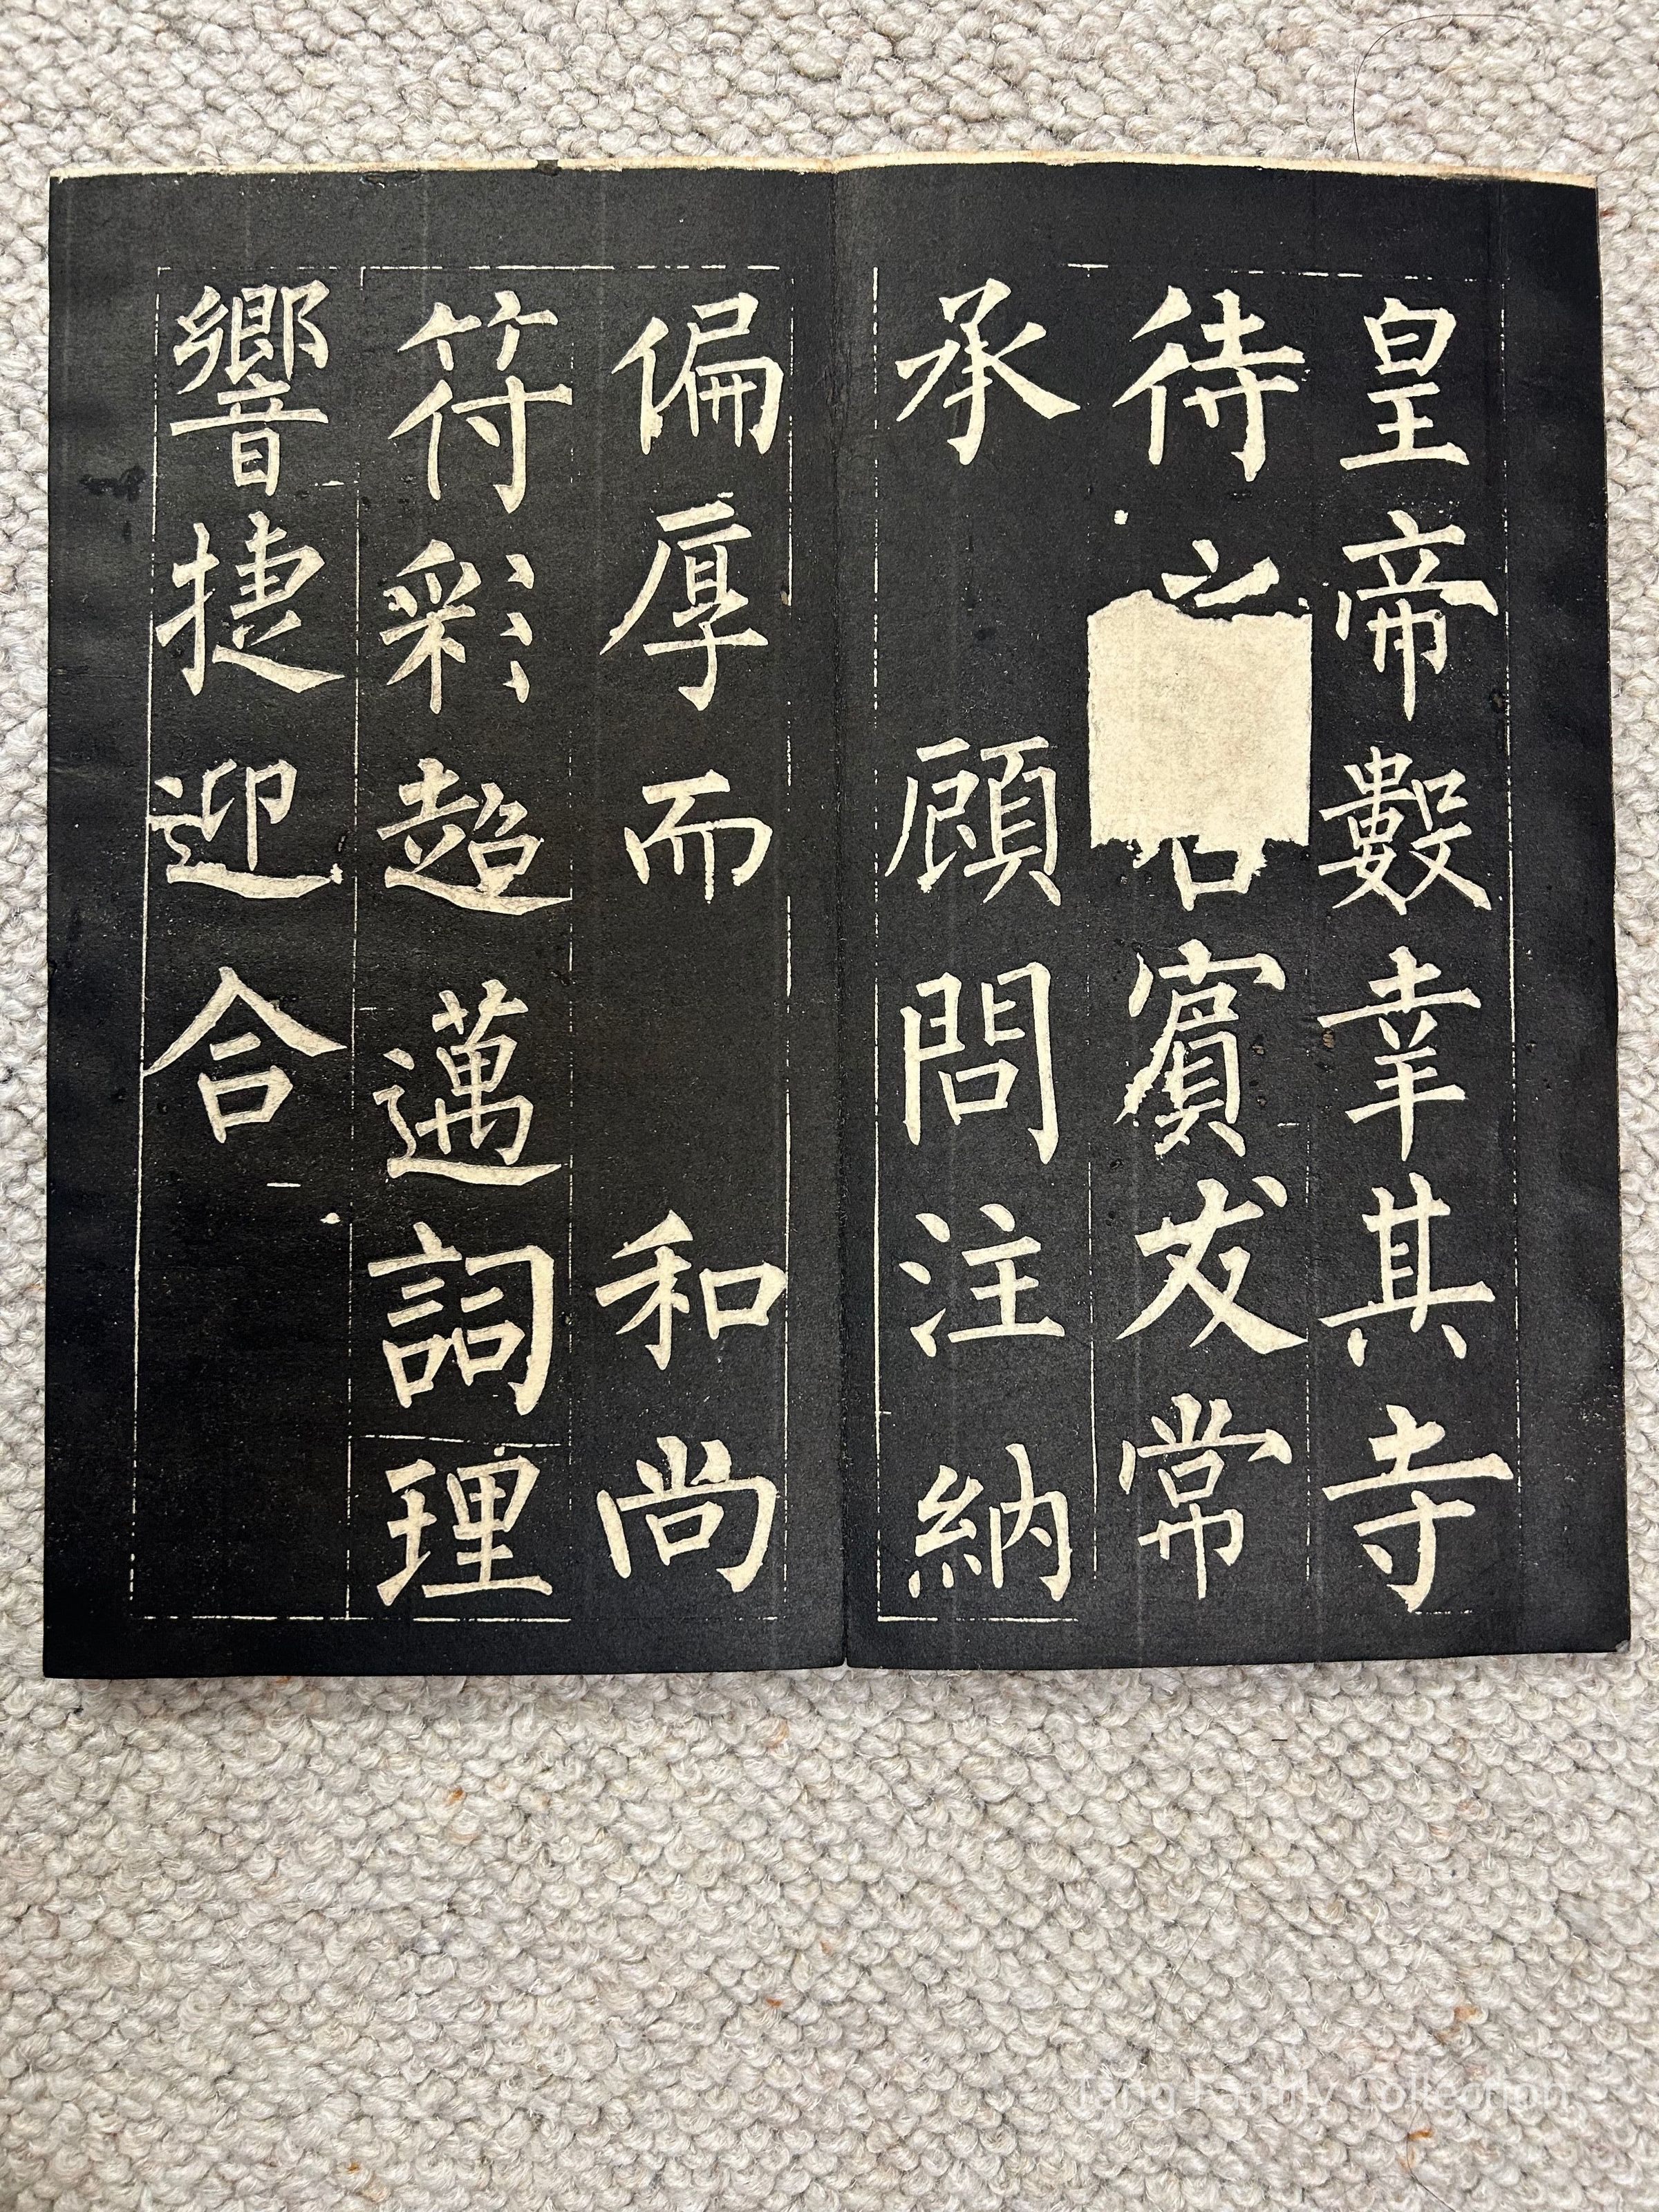 皇帝數幸其寺
待賓友常
承顧問注納
偏厚而和尚
符彩超邁詞理
響捷迎合
Tang Family Collection